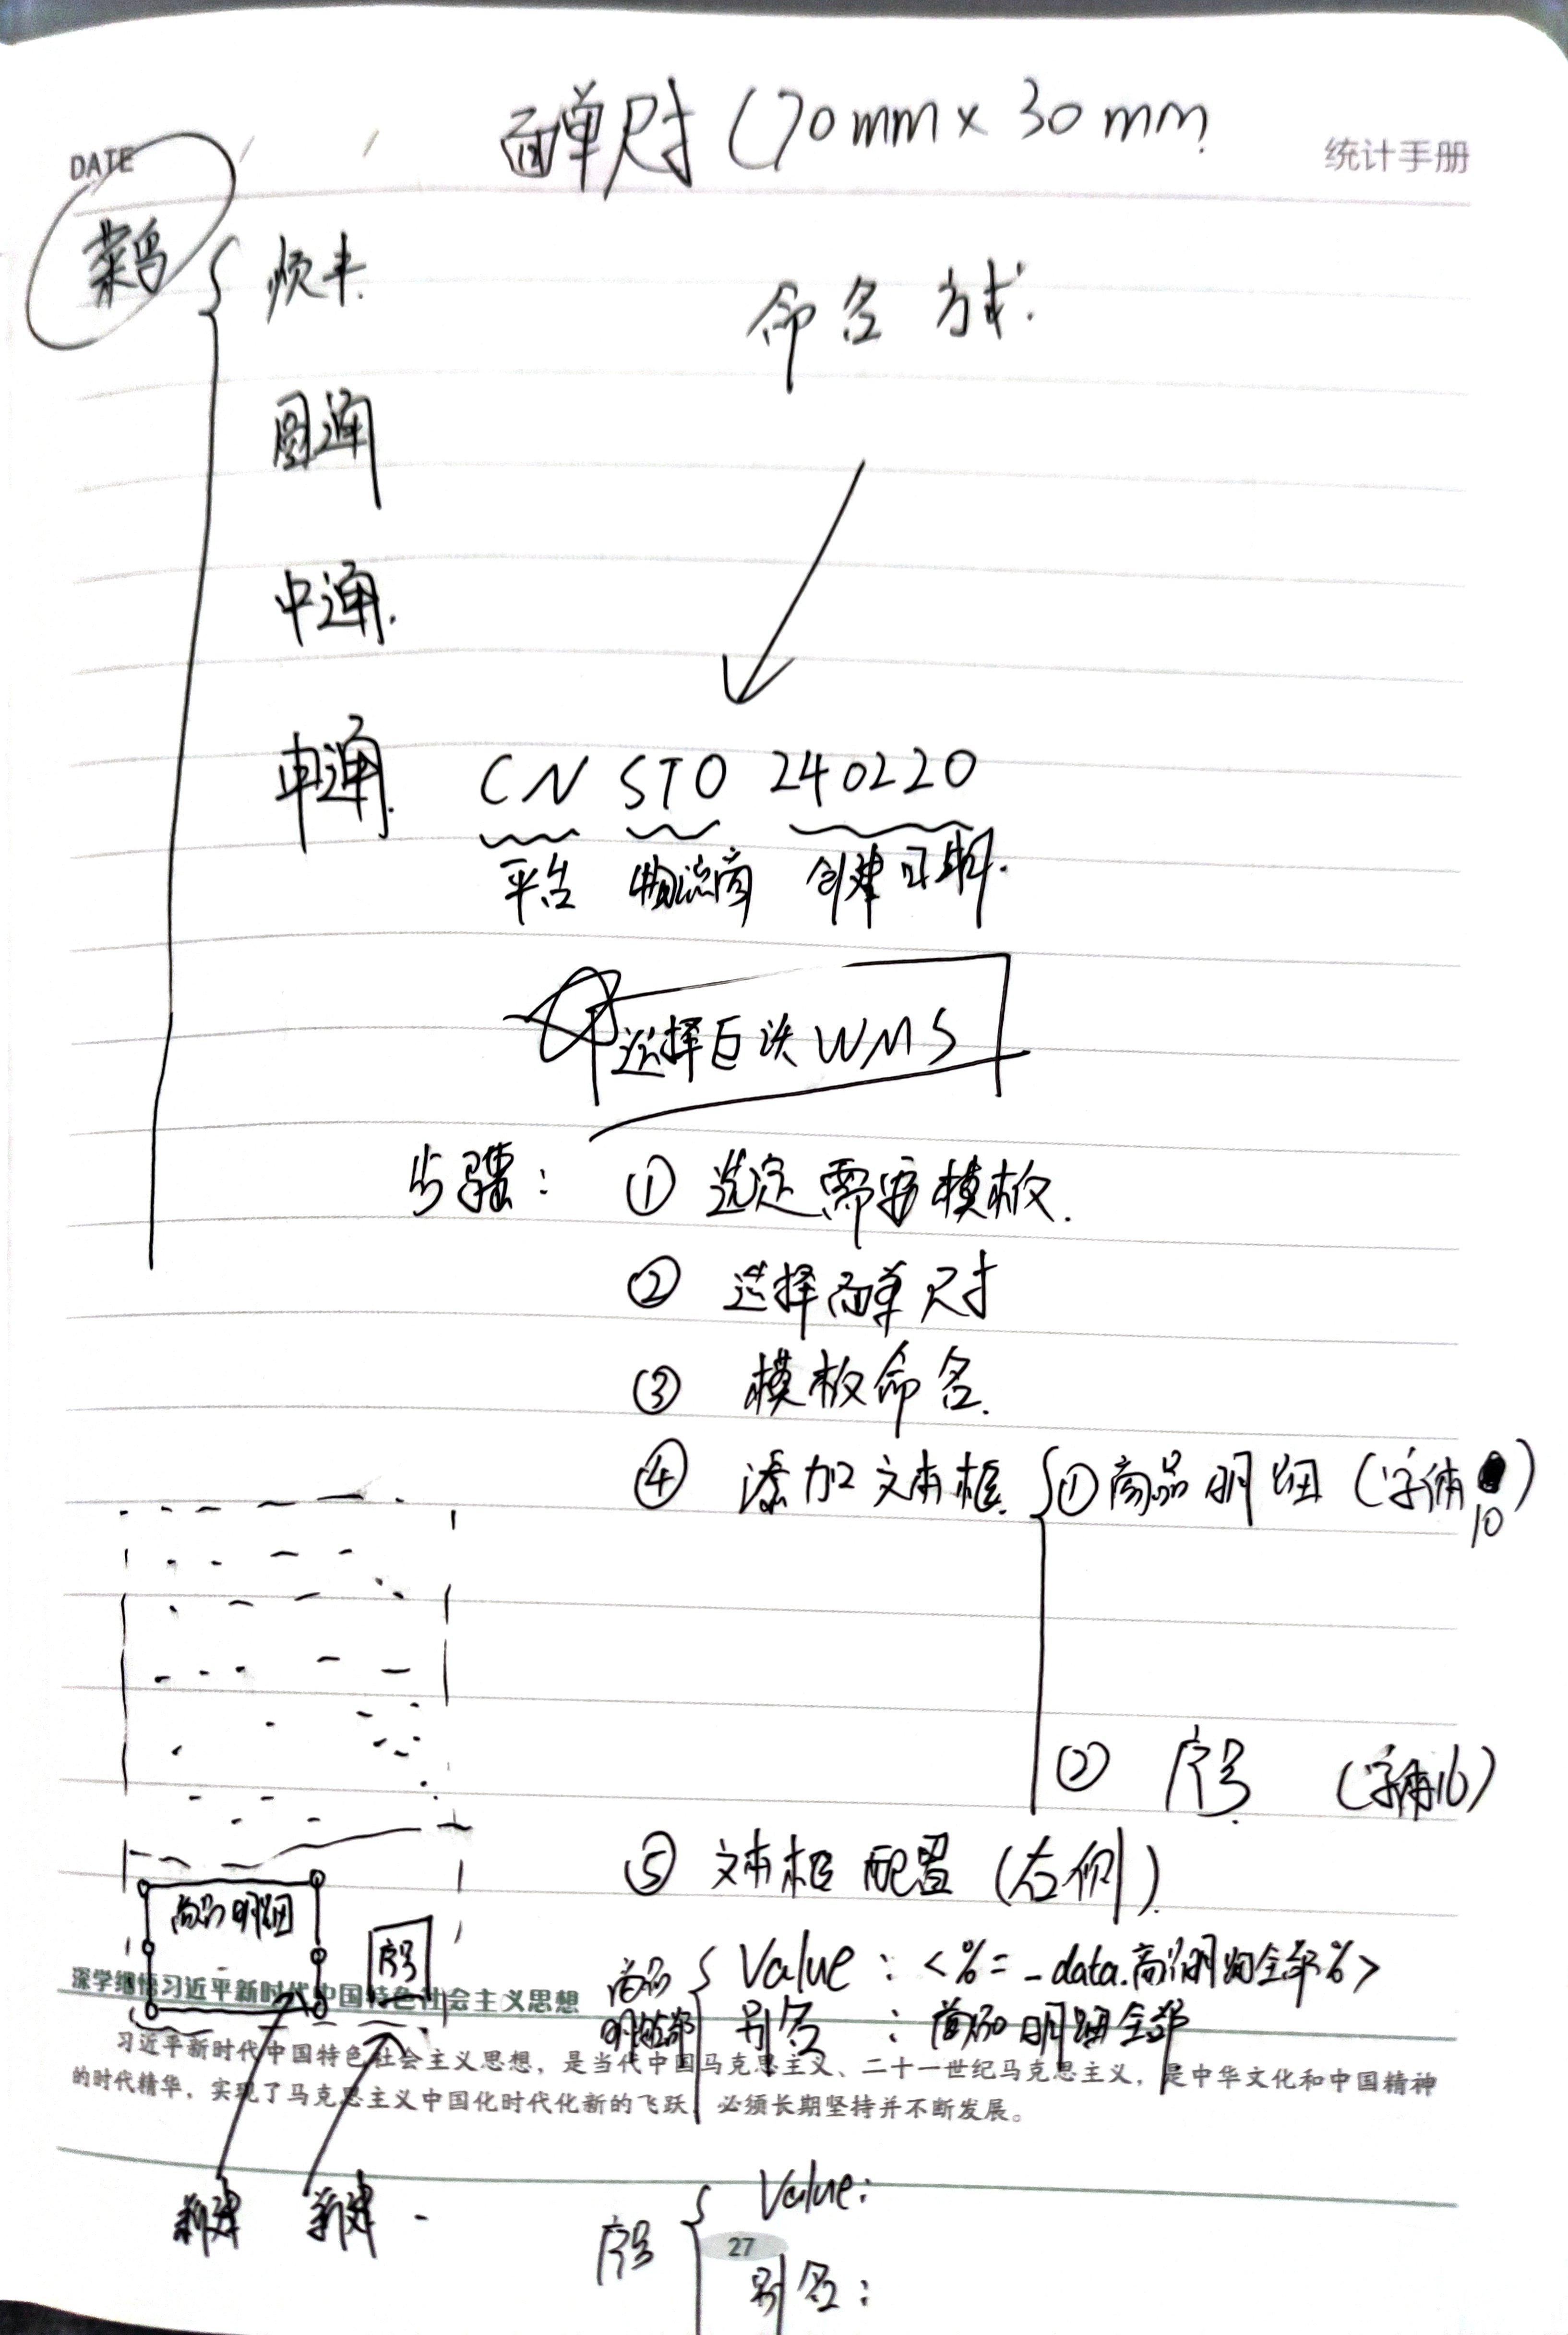 面单尺寸 (70mm × 30mm
DATE
统计手册
菜鸟
顺丰.
命名方式.
圆通
中通.
申通.
CN STO 240220
平台 物流商 创建日期.
选择巨沃WMS
步骤: ① 选定需要模板.
② 选择面单尺寸
③ 模板命名.
④ 添加文本框 ①商品明细 (字体10)
② 序号 (字体16)
⑤ 文本框配置 (右侧)
商品明细
序号
商品明细全部
Value : <%=_data.商品明细全部%>
别名 : 商品明细全部
深学细悟习近平新时代中国特色社会主义思想
习近平新时代中国特色社会主义思想，是当代中国马克思主义、二十一世纪马克思主义，是中华文化和中国精神
的时代精华，实现了马克思主义中国化时代化新的飞跃，必须长期坚持并不断发展。
新建 新建
序号
Value:
别名:
27